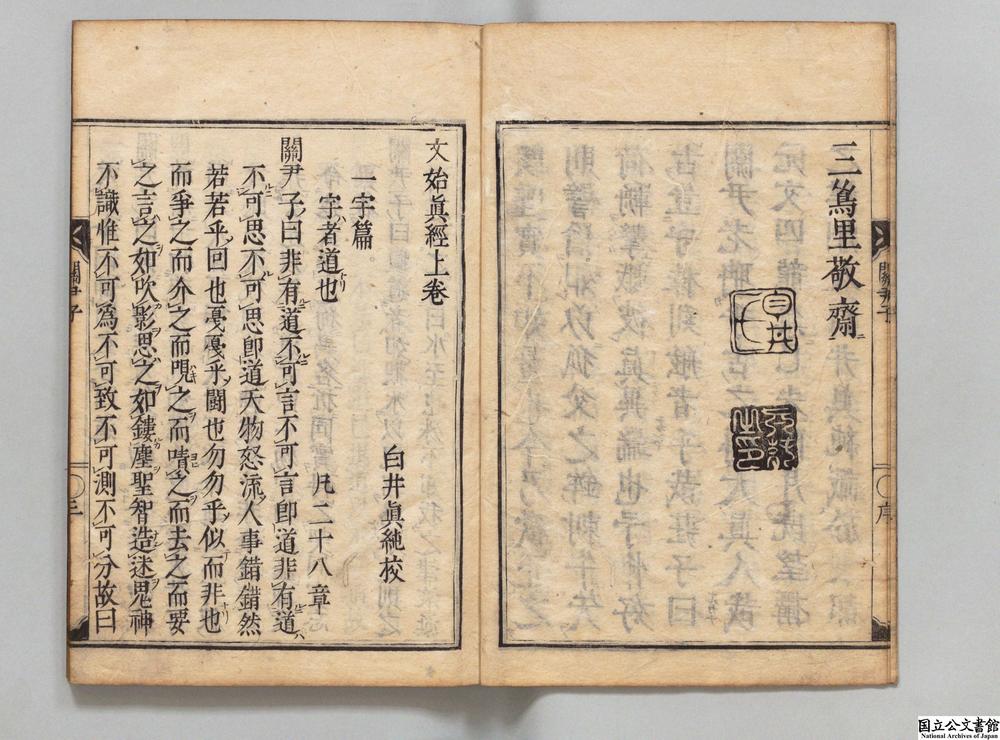 三蔦里敬齋
文始眞經上卷
白井眞純校
一宇篇
凡二十八章
宇者道也
關尹子曰非有道不可言不可言即道非有道
不可思不可思即道天物怒流人事錯錯然
若若乎回也戞戞乎鬪也勿勿乎似而非也
而爭之而介之而哯之而嘖之而去之而要
之言之如吹影思之如鏤塵聖智造迷鬼神
不識惟不可爲不可致不可測不可分故曰
關尹子
三
關尹子
序
国立公文書館
National Archives of Japan